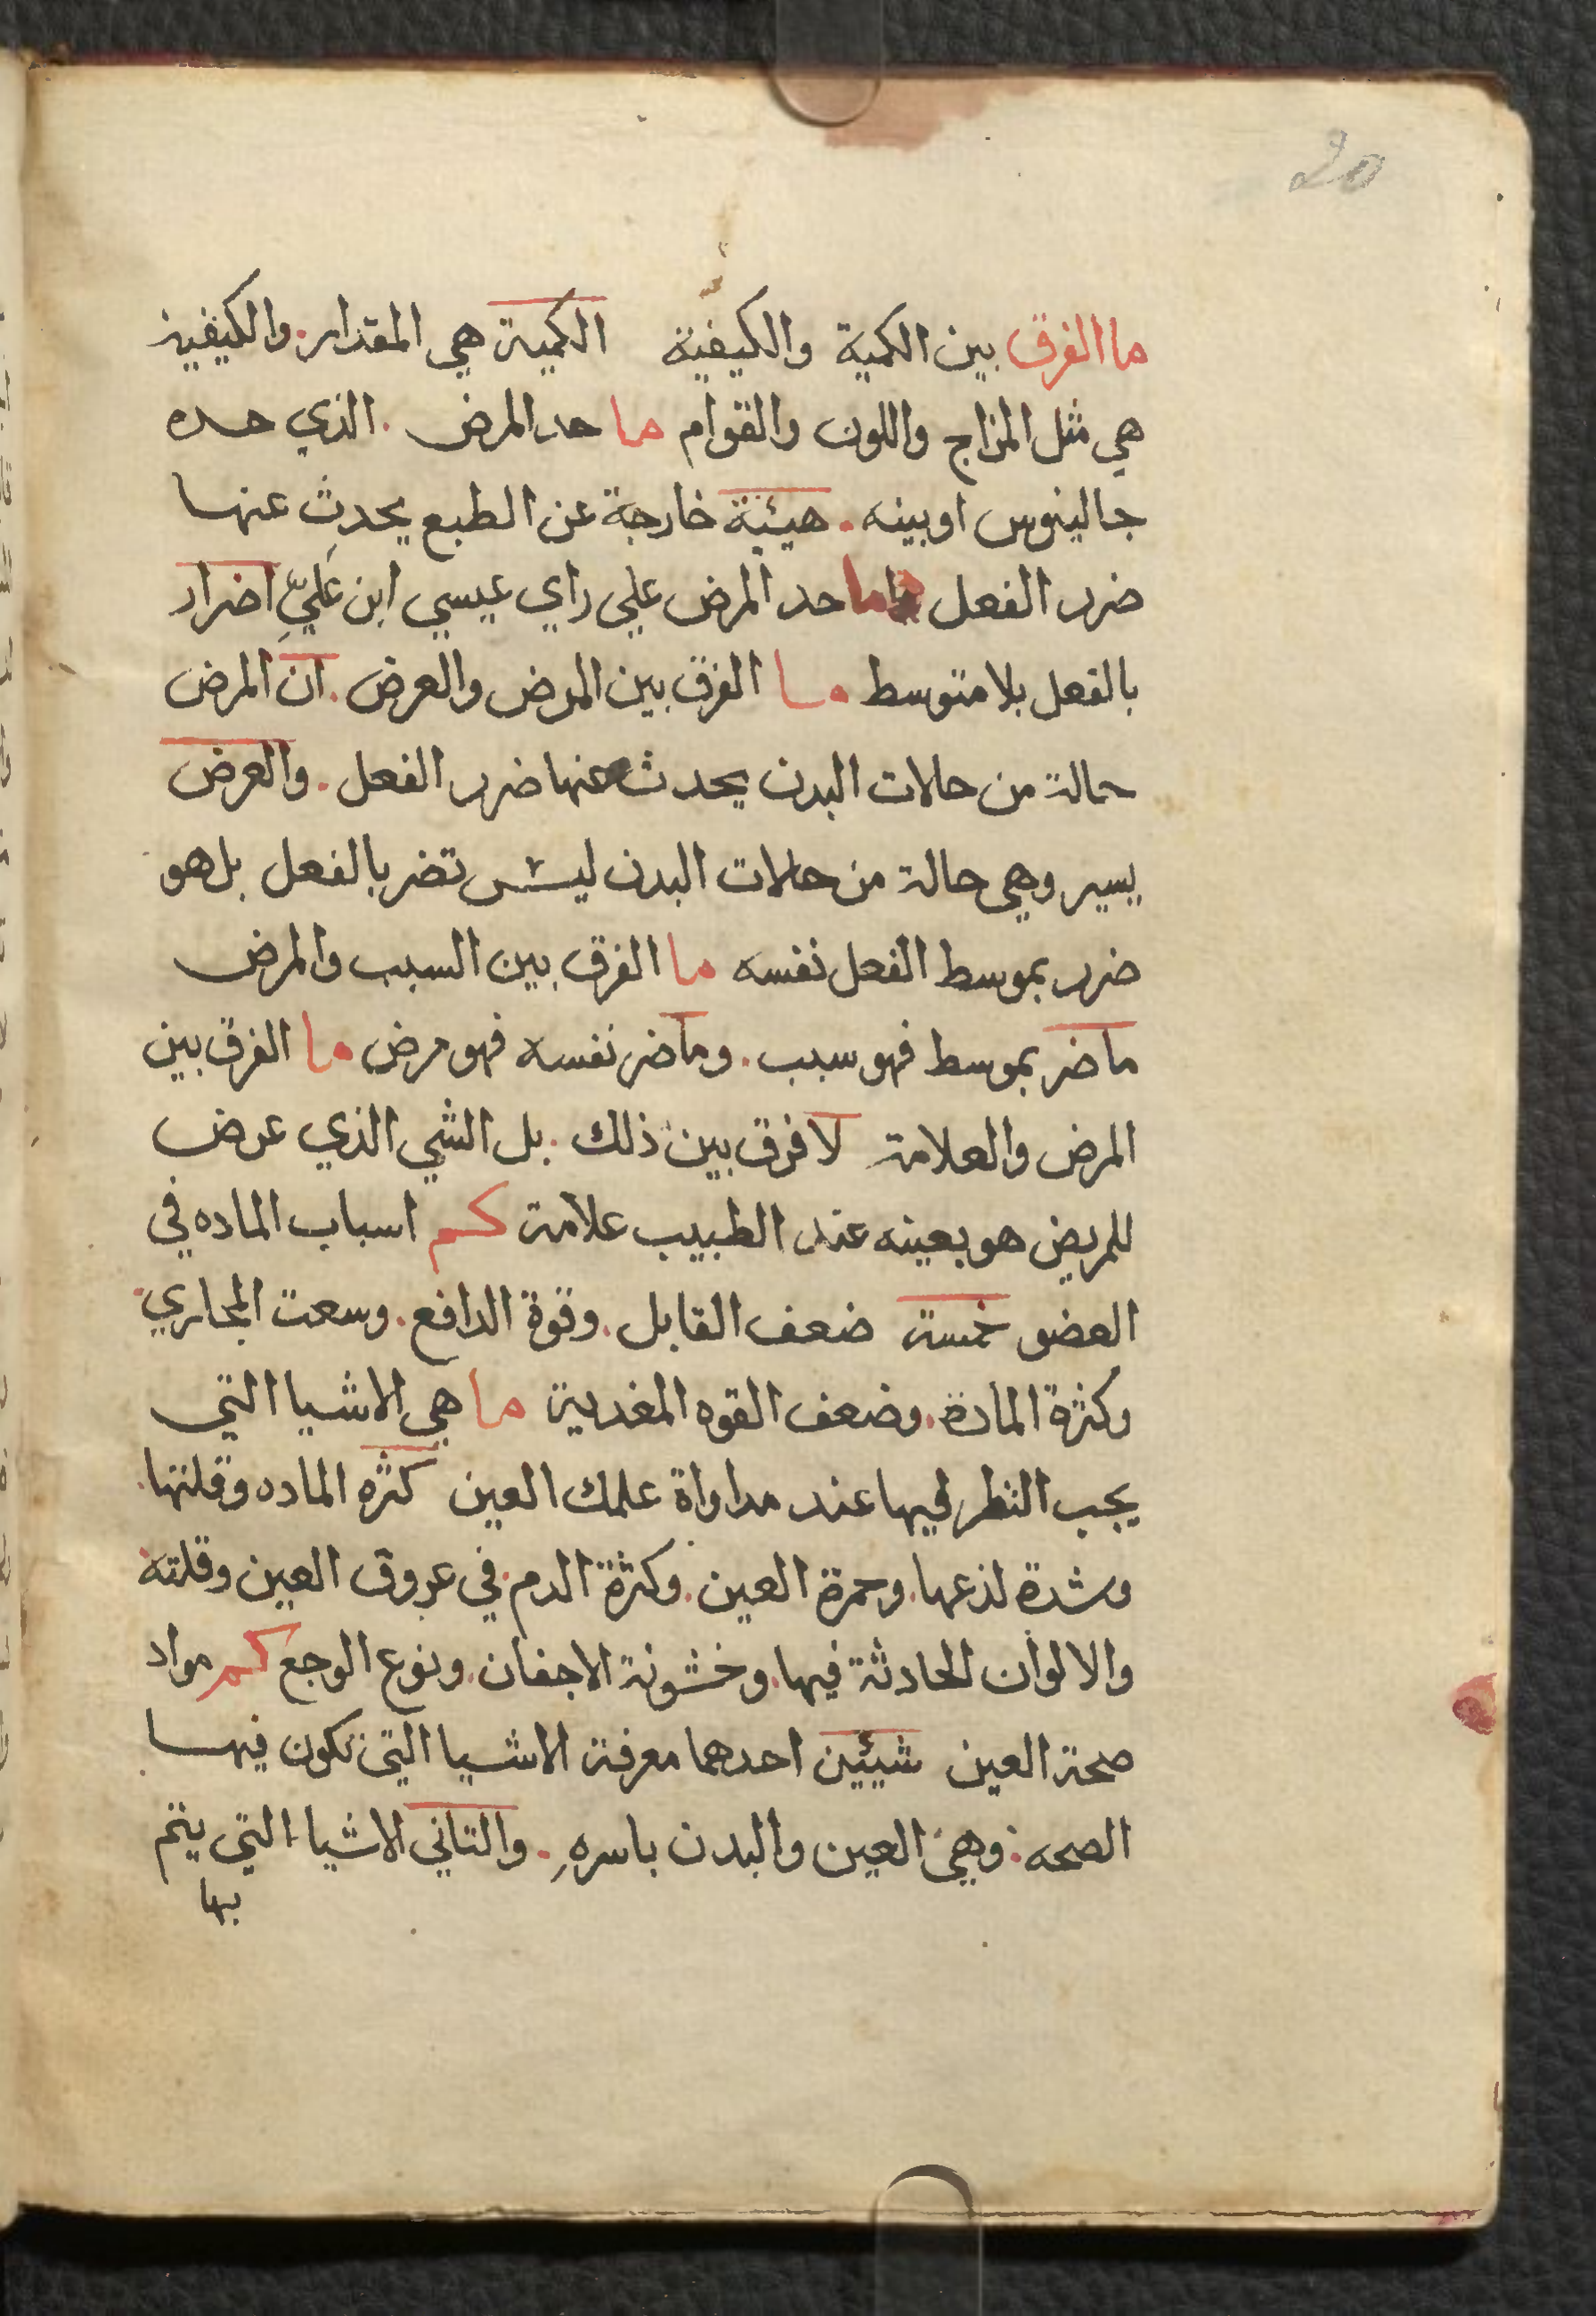 20
ما الفرق بين الكمية والكيفية الكمية هي المقدار. والكيفية
هي مثل المزاج واللون والقوام ما حد المرض. الذي حده
جالينوس او بينه. هيئة خارجة عن الطبع يحدث عنها
ضرر الفعل ما حد المرض علي راي عيسي ابن عَليٍّ اضرار
بالفعل بلا متوسط ما الفرق بين المرض والعرض. ان المرض
حالة من حالات البدن يحدث عنها ضرر الفعل. والعرض
يسير وهي حالة من حالات البدن ليس تضر بالفعل بل هو
ضرر بموسط الفعل نفسه ما الفرق بين السبب والمرض
ما ضر بموسط فهو سبب. وما ضر نفسه فهو مرض ما الفرق بين
المرض والعلامة لا فرق بين ذلك. بل الشي الذي عرض
للمريض هو بعينه عند الطبيب علامة كم اسباب الماده في
العضو خمسة ضعف القابل. وقوة الدافع. وسعت المجاري.
وكثرة المادة. وضعف القوه المغدية ما هي الاشيا التي
يجب النظر فيها عند مداواة علمك العين كثره الماده وقلتها.
وشدة لذعها. وحمرة العين. وكثرة الدم. في عروق العين وقلته
والالوان الحادثة فيها. وخشونة الاجفان. ونوع الوجع كم مواد
صحة العين شيئين احدهما معرفة الاشيا التي تكون فيها
الصحه: وهي العين والبدن باسرهِ. والتاني الاشيا التي يتم
بها